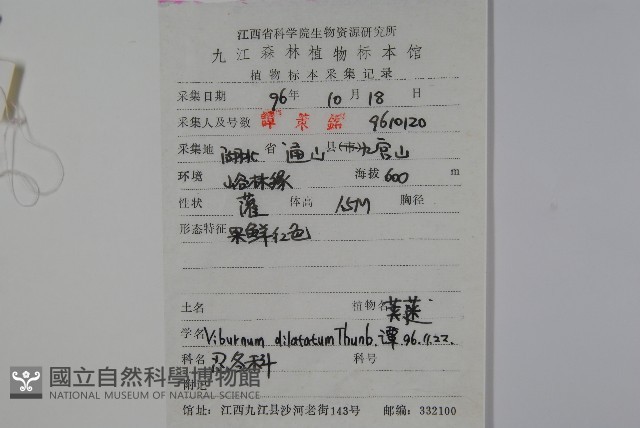 江西省科学院生物资源研究所
九江森林植物标本馆
植物标本采集记录
采集日期 96年 10月 18日
采集人及号数 譚策銘 9610120
采集地 湖北省 通山县(市)九宫山
环境 路林缘 海拔 600 m
性状 灌 体高 1.5M 胸径
形态特征 果鲜红色
土名 植物名 荚蒾
学名 Viburnum dilatatum Thunb. 谭 96.11.22.
科名 忍冬科 科号
附记
國立自然科學博物館
NATIONAL MUSEUM OF NATURAL SCIENCE
馆址：江西九江县沙河老街143号 邮编：332100